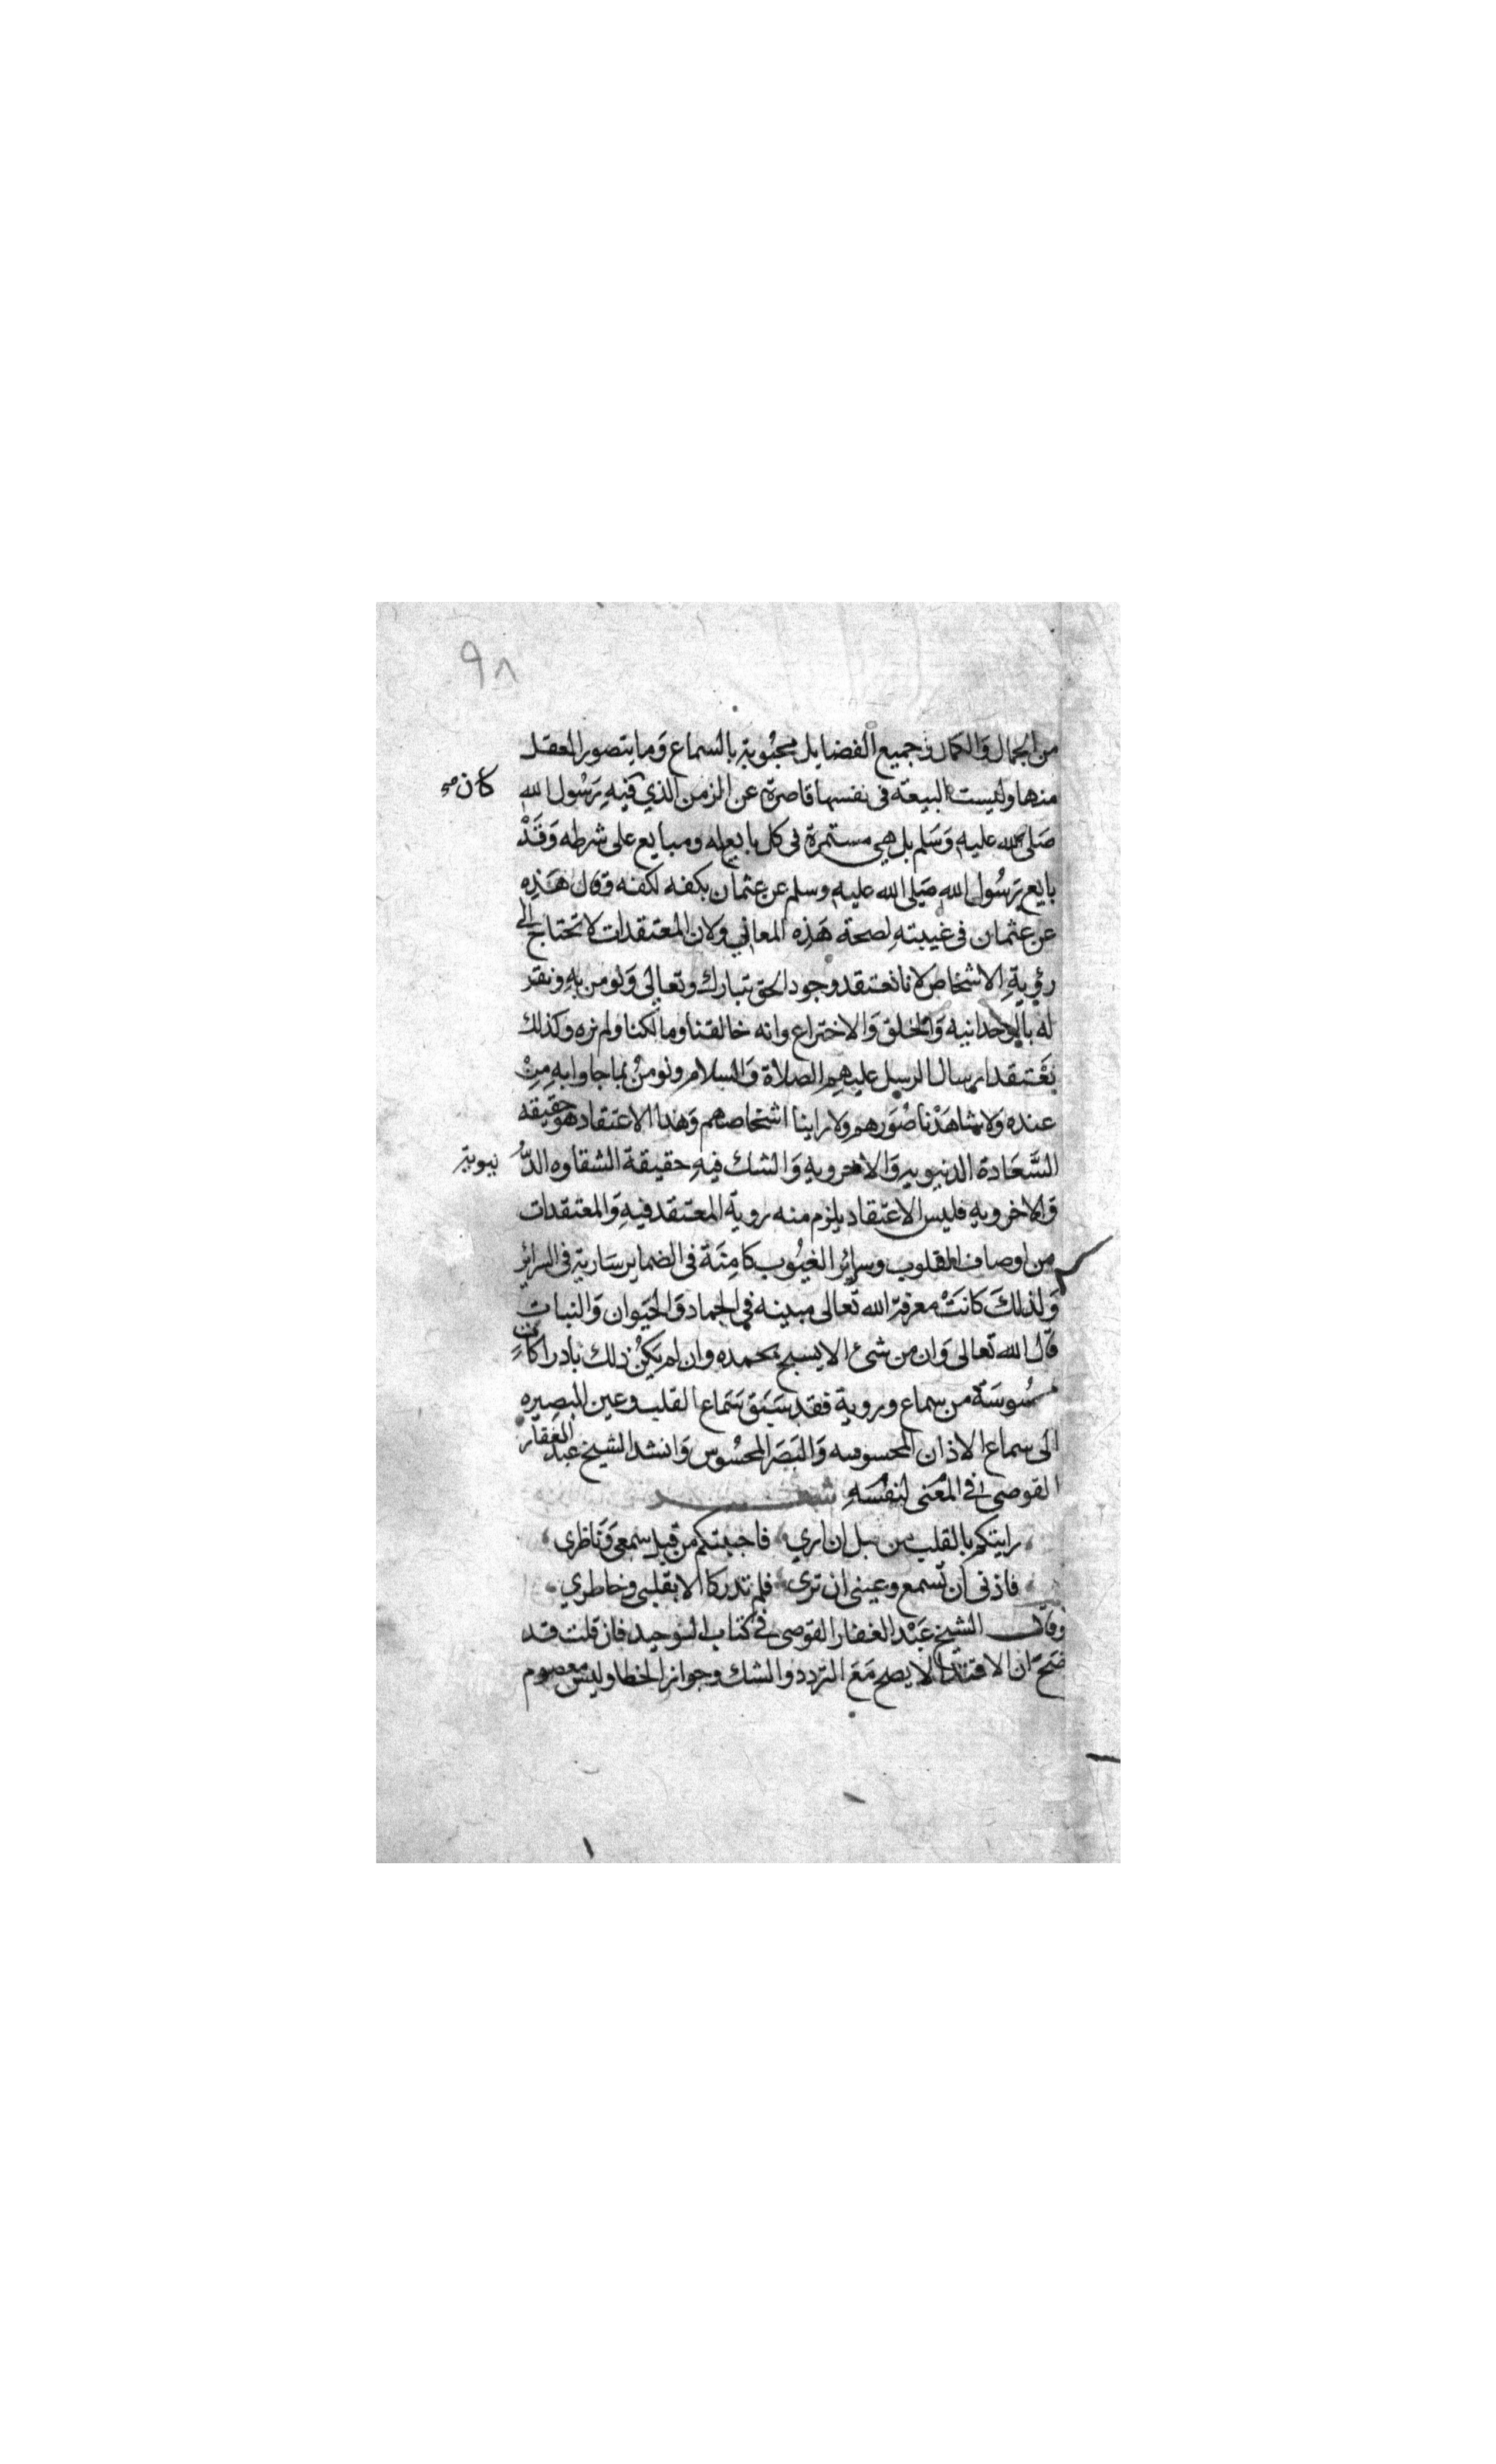 ٩٨
من الجمال وَالكمال وجميع الفضايل محبُوبة بالسماع وَما يتصور العقل
منها وليست البيعة فى نفسها قاصرة عن الزمن الذي فيهِ رَسُول الله
كان
صَلى الله عليهِ وَسَلم بل هي مستمرة فى كل بايع له ومبايع على شرطه وَقَدْ
بايع رَسُول الله صَلى الله عليهِ وسلم عن عثمان بكفه لكفه وقال هَذِه
عن عثمان فى غيبتهِ لصحة هَذِه المعاني ولان المعتقدات لا تحتاج الى
رؤيةِ الاشخاص لاننا نعتقد وجود الحق تبارك وتعالى وَنومن بهِ ونقر
له بالوحدانيه وَالخلق وَالاختراع وانه خالقنا ومالكنا ولم نره وكذلك
نَعْتقد ارسال الرسل عليهِم الصلاة وَالسلام ونومنُ بما جاوا بهِ مِنْ
عنده وَلا شاهَدْنا صُوَرهم ولا راينا اشخاصهم وَهذا الاعتقاد هو حقيقه
السَّعَادة الدنيويه وَالاخرويه وَالشك فيهِ حقيقة الشقاوه الدُّ
نيوية
وَالاخرويه فليس الاعتقاد يلزم منه روية المعتقد فيهِ وَالمعتقدات
من اوصاف القلوب وسرائر الغيُوب كامِنَة فى الضماير سَارية فى السرائر
وَلذلكَ كانَتْ معرفة الله تعالى مبينه في الجماد وَالحيَوان وَالنبات
قال الله تعالى وَان من شىء الا يسبح بحمده وان لم يكنْ ذلك بادراكاتٍ
محسُوسَة من سماع وروية فقد سَبَق سَمَاع القلب وعين البصيره
الى سماع الاذان المحسوسه وَالبَصَر المحسُوس وَانشد الشيخ عبد الغفار
القوصى في المعَنى لنفسَهِ شعــــر
رايتكم بالقلب من قبل ان اري فاحببتكم من قبل سمعى وَناظرى
فاذنى ان تسمع وعينى ان ترى فلم تدركا الا بقلبى وخاطري
وقال الشيخ عَبْد الغفار القوصى فى كتاب التوحيد فان قلت قد
صَح ان الاقتدا لا يصح مَعَ التردد والشك وجواز الخطا وليسَ معصوم